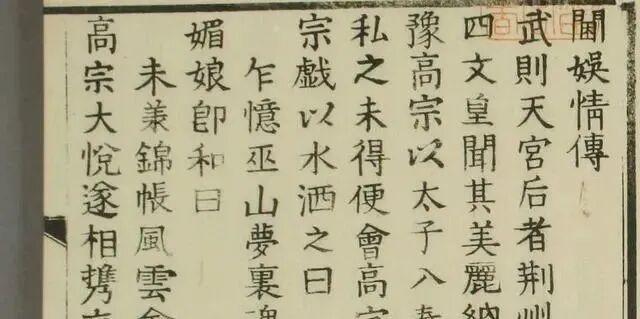 閫娛情傳
武則天宮后者荆州
四文皇聞其美麗納
豫高宗以太子入奉
私之未得便會高宗
宗戲以水洒之曰
乍憶巫山夢裏魂
媚娘卽和曰
未兼錦帳風雲會
高宗大悅遂相携交